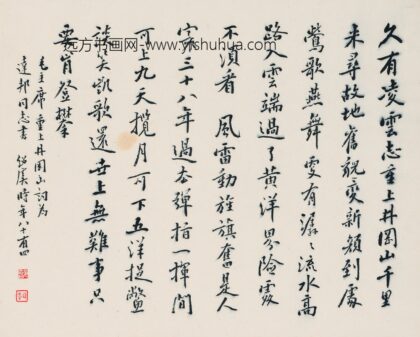 远方书画网-www.yfshuhua.com
久有凌雲志重上井岡山千里
来尋故地舊貌變新顔到處
鶯歌燕舞更有潺〻流水高
路入雲端過了黄洋界險處
不須看 風雷動旌旗奮是人
寰三十八年過去彈指一揮間
可上九天攬月可下五洋捉鱉
談笑凱歌還世上無難事只
要肯登攀
毛主席重上井岡山词为
達邦同志書 紹虞時年八十有四